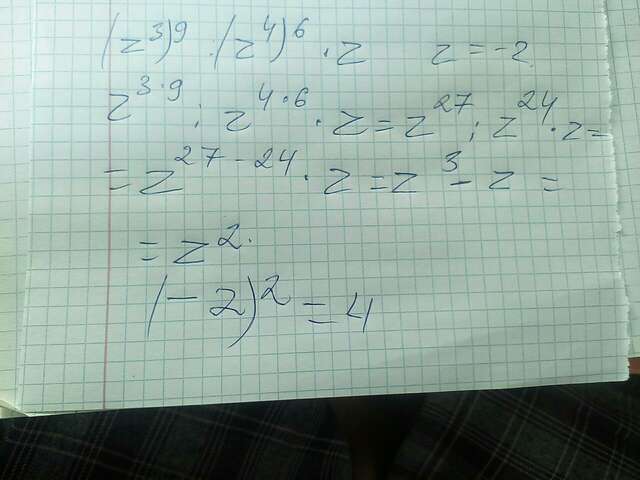 (z³)⁹ : (z⁴)⁶ · z z = -2
z³·⁹ : z⁴·⁶ · z = z²⁷ : z²⁴ · z =
= z²⁷⁻²⁴ · z = z³ - z =
= z².
(-2)² = 4